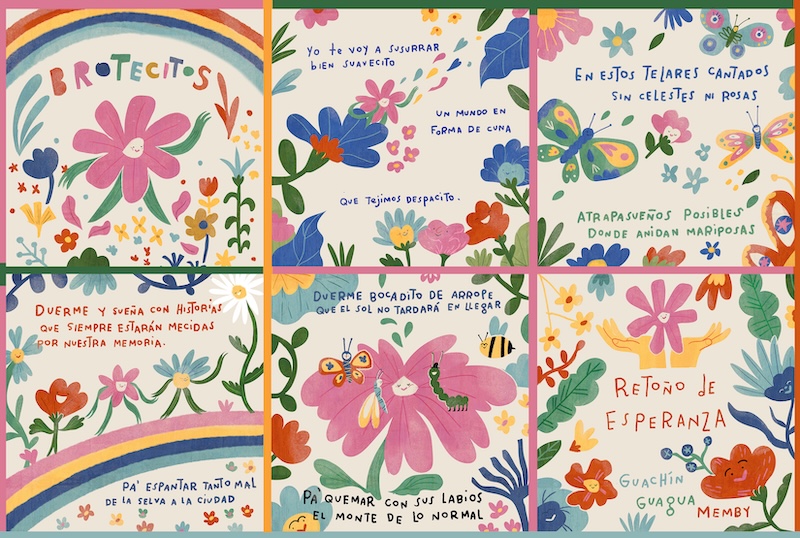 BROTECITOS
Yo te voy a susurrar
bien suavecito
un mundo en
forma de cuna
que tejimos despacito.
En estos telares cantados
sin celestes ni rosas
atrapasueños posibles
donde anidan mariposas
Duerme y sueña con historias
que siempre estarán mecidas
por nuestra memoria.
Pa' espantar tanto mal
de la selva a la ciudad
Duerme bocadito de arrope
que el sol no tardará en llegar
Pa' quemar con sus labios
el monte de lo normal
Retoño de
Esperanza
Guachín
Guagua
Memby